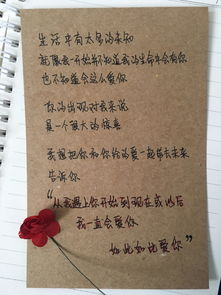 生活中有太多的未知
就像我一开始并不知道我的生命中会有你
也不知道会这么爱你
你的出现对我来说
是一个很大的惊喜
我想把你和你给的爱一起带去未来
告诉你
“从我遇上你开始到现在或以后
我一直会爱你
如此如此爱你”